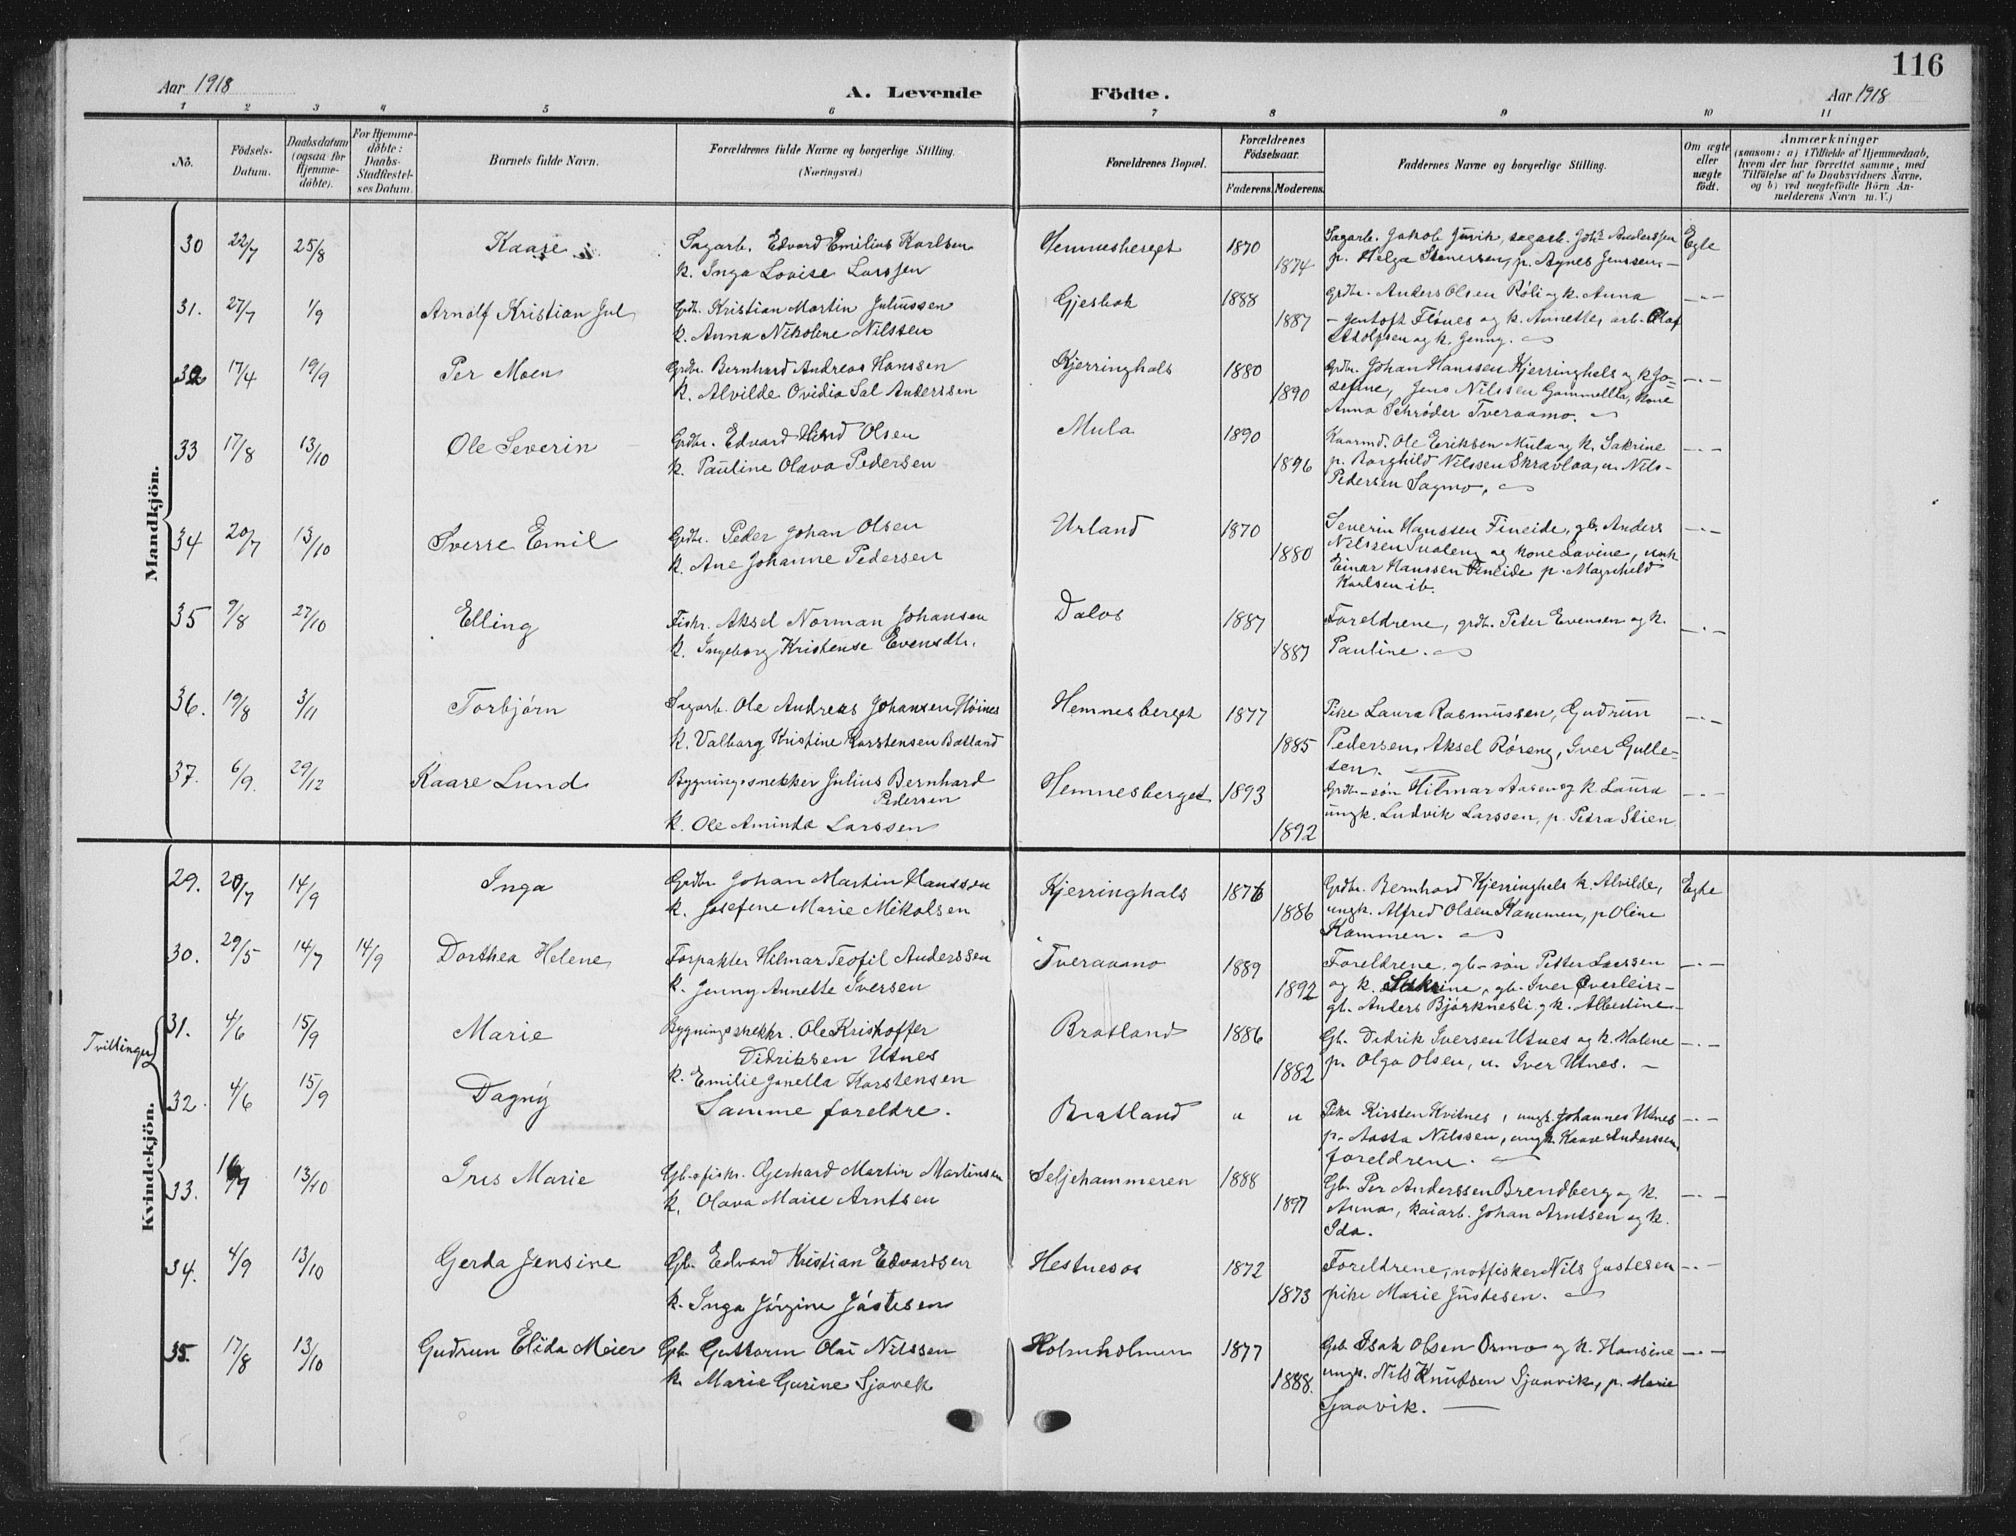 116
Aar 1918
A. Levende Födte.
Aar 1918
1 2 3 4 5 6 7 8 9 10 11
No.
Födsels-
Datum.
Daabsdatum
(ogsaa for
Hjemme-
döbte).
For Hjemme-
döbte:
Daabs-
Stadfæstel-
ses Datum.
Barnets fulde Navn.
Forældrenes fulde Navne og borgerlige Stilling.
(Næringsvei.)
Forældrenes Bopæl.
Forældrenes
Födselsaar.
Faderens. Moderens.
Faddernes Navne og borgerlige Stilling.
Om ægte
eller
uægte
født.
Anmærkninger
(saasom: a) i Tilfælde af Hjemmedaab,
hvem der har forrettet samme, med
Tilföielse af to Daabsvidners Navne,
og b) ved uægtefødte Börn An-
melderens Navn m. V.)
Mandkjön.
30 22/7 25/8 Kaare Sagarb. Edvard Emilius Karlsen Hemnesberget 1870 Sagarb. Jakob Jurik, sagarb. Joh. Anderssen Egte
k. Inga Lovise Larssen 1874 p. Helga Stenersen, p. Agnes Jenssen. -
31. 27/7 1/9 Arnolf Kristian Jul Grdbr. Kristian Martin Juliussen Gjesbak 1888 Grdbr. Anders Olsen Røli og k. Anna -"-
k. Anna Nikoline Nilssen 1887 - Jentoft Flønes og k. Annette, arb. Olaf
Adolfsen og k. Jenny.
32 17/4 19/9 Per Moen Grdbr. Bernhard Andreas Hanssen Kjerringhals 1880 Grdbr. Johan Hanssen Kjerringhals og k Jo= -"-
k. Alvilde Ovidia Sal Anderssen 1890 sefine, Jens Nilssen Gammellla, kone
Anna Schrøder Tveraamo.
33 17/8 13/10 Ole Severin Grdbr. Edvard Olsen Mula 1890 Kaarmd. Ole Eriksen Mula og k. Sakrine -"-
k. Pauline Olava Pedersen 1896 p. Borghild Nilssen Skravlaa, u. Nils-
Pedersen Sagmo.
34 20/7 13/10 Sverre Emil Grdbr. Peder Johan Olsen Urland 1870 Severin Hanssen Fineide, gb. Anders -"-
k. Ane Johanne Pedersen 1880 Nilssen og kone Lavine, ungk
Einar Hanssen Fineide p. Magnhild
Karlsen ib.
35 9/8 27/10 Elling Fiskr. Aksel Norman Johansen Dalos 1887 Foreldrene, grdb. Peter Evensen og k. -"-
k. Ingeborg Kristense Evensdtr. 1887 Pauline.
36. 19/8 3/11 Torbjørn Sagarb. Ole Andreas Johansen Høines Hemnesberget 1877 Pike Laura Rasmussen, Gudrun -"-
k. Valborg Kristine Karstensen Batland 1885 Pedersen, Aksel Røreng, Iver Gulle-
sen.
37. 6/9. 29/12 Kaare Lund Bygningssnekker Julius Bernhard Hemnesberget 1893 Grdbr-søn Hilmar Aasen og k Laura -"-
Pedersen
k. Ole Aminda Larssen 1892 ungk. Ludvik Larssen, p. Petra Stien
Kvindekjön.
29. 20/7 14/9 Inga Grdbr. Johan Martin Hanssen Kjerringhals 1876 Grdbr. Bernhard Kjerringhals k. Alvilde, Egte
k. Josefene Marie Mikalsen 1886 ungk. Alfred Olsen Kammen, p Oline
Kammen.
30. 29/5 14/7 14/9 Dorthea Helene Forpakter Hilmar Teofil Anderssen Tveraamo 1889 Foreldrene, gb-søn Petter Larssen -"-
k. Jenny Annette Iversen 1892 og k. Sakrine, gb. Iver Øverleir-
gb. Anders Bjørknesli og k. Albertine-
Tvillinger
31. 4/6 15/9 Marie Bygningssnekkr. Ole Kristoffer Bratland 1886 Gb. Didrik Iversen Utnes og k. Malene -"-
Didriksen Utnes
k. Emilie Janella Karstensen 1882 p. Olga Olsen, u. Iver Utnes. -
32. 4/6 15/9 Dagny Samme foreldre. Bratland " " Pike Kirsten Kvitnes, ungk. Johannes Utnes -"-
p. Aasta Nilssen, ungk. Kaare Anderssen
foreldrene.
33. 16/7 13/10 Iris Marie Gb. fiskr. Gerhard Martin Martinsen Seljehammeren 1888 Gb. Per Anderssen Brendberg og k. -"-
k. Olava Marie Arntsen 1897 Anna, kaiarb. Johan Arntsen og k.
Ida.
34. 4/9 13/10 Gerda Jensine Gb. Edvard Kristian Edvardsen Hestnesos 1872 Foreldrene, notfisker Nils Justesen -"-
k. Inga Jørgine Jústesen 1873 pike Marie Justesen.
35. 17/8 13/10 Gudrun Elida Meier Gb. Guttorm Olai Nilssen Holmholmen 1877 Gb. Isak Olsen Ormo og k. Hansine -"-
k. Marie Gurine Sjavik 1888. ungk. Nils Knutsen Sjaavik, p. Marie
Sjaavik.